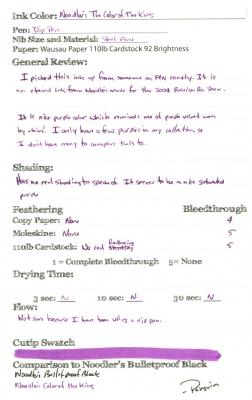 Ink Color: Noodler's The Color of the King
Pen: Dip Pen
Nib Size and Material: Steel Pen
Paper: Wausau Paper 110lb Cardstock 92 Brightness
General Review:
I picked this ink up from someone on FPN recently. It is
an eternal ink from Noodler's made for the 2008 Raleigh Pen Show.
It is nice purple color which reminds me of purple velvet worn
by kings. I only have a few purples in my collection so
I don't have many to compare this to.
Shading:
Has no real shading to speak of. It seems to be a nice saturated
purple
Feathering Bleedthrough
Copy Paper: None 4
Moleskine: None 5
110lb Cardstock: No real feathering 5
1 = Complete Bleedthrough 5= None
Drying Time:
3 sec: N 10 sec: N 30 sec: N
Flow:
Not sure because I have been using a dip pen.
Cutip Swatch
Comparison to Noodler's Bulletproof Black
Noodler's Bulletproof Black
Noodler's Color of the King